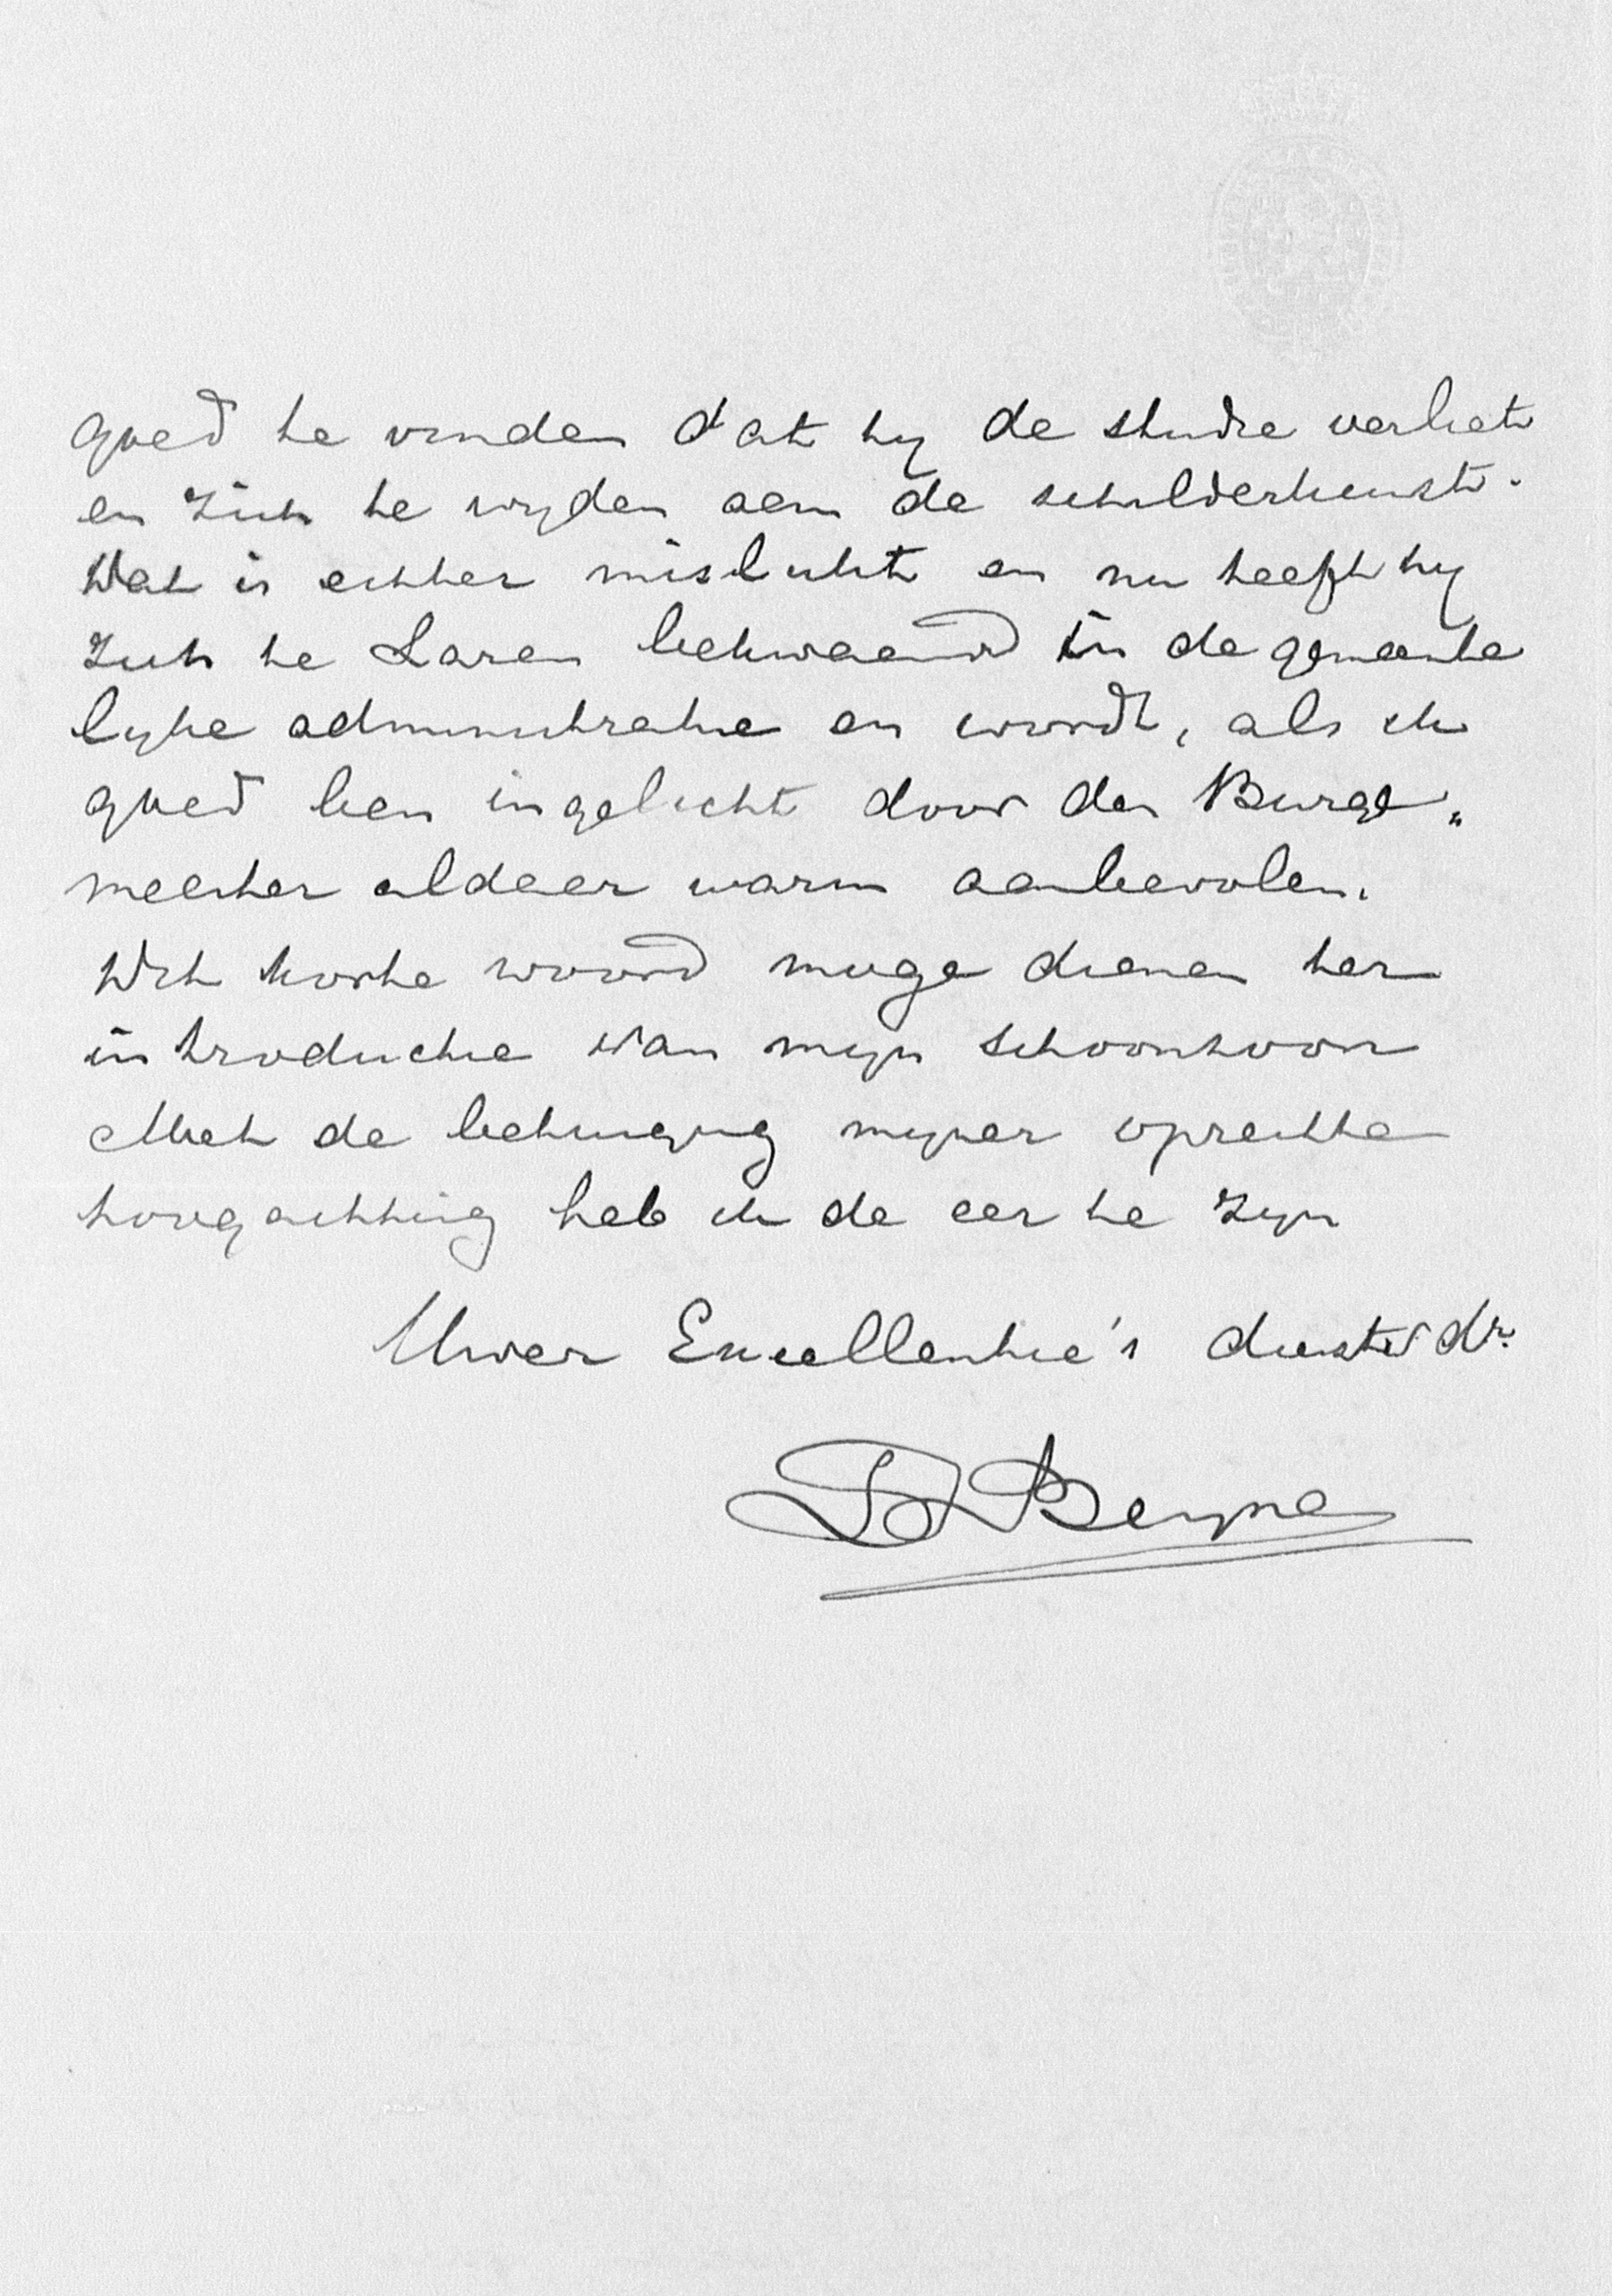 goed te vinden dat hy de studie verliet
en zich te wyden aan de schilderkunst.
Dat is echter mislukt en nu heeft hy
zich te Laren bekwaamd in de gemeente
lyke administratie en wordt, als ik
goed ben ingelicht door den Burge„
meester aldaar warm aanbevolen.
Dit korte woord moge dienen ter
introductie van myn schoonzoon
Met de betuiging myner oprechte
hoogachting heb ik de eer te zyn
Uwer Excellentie's dienstw dr.
Beyne